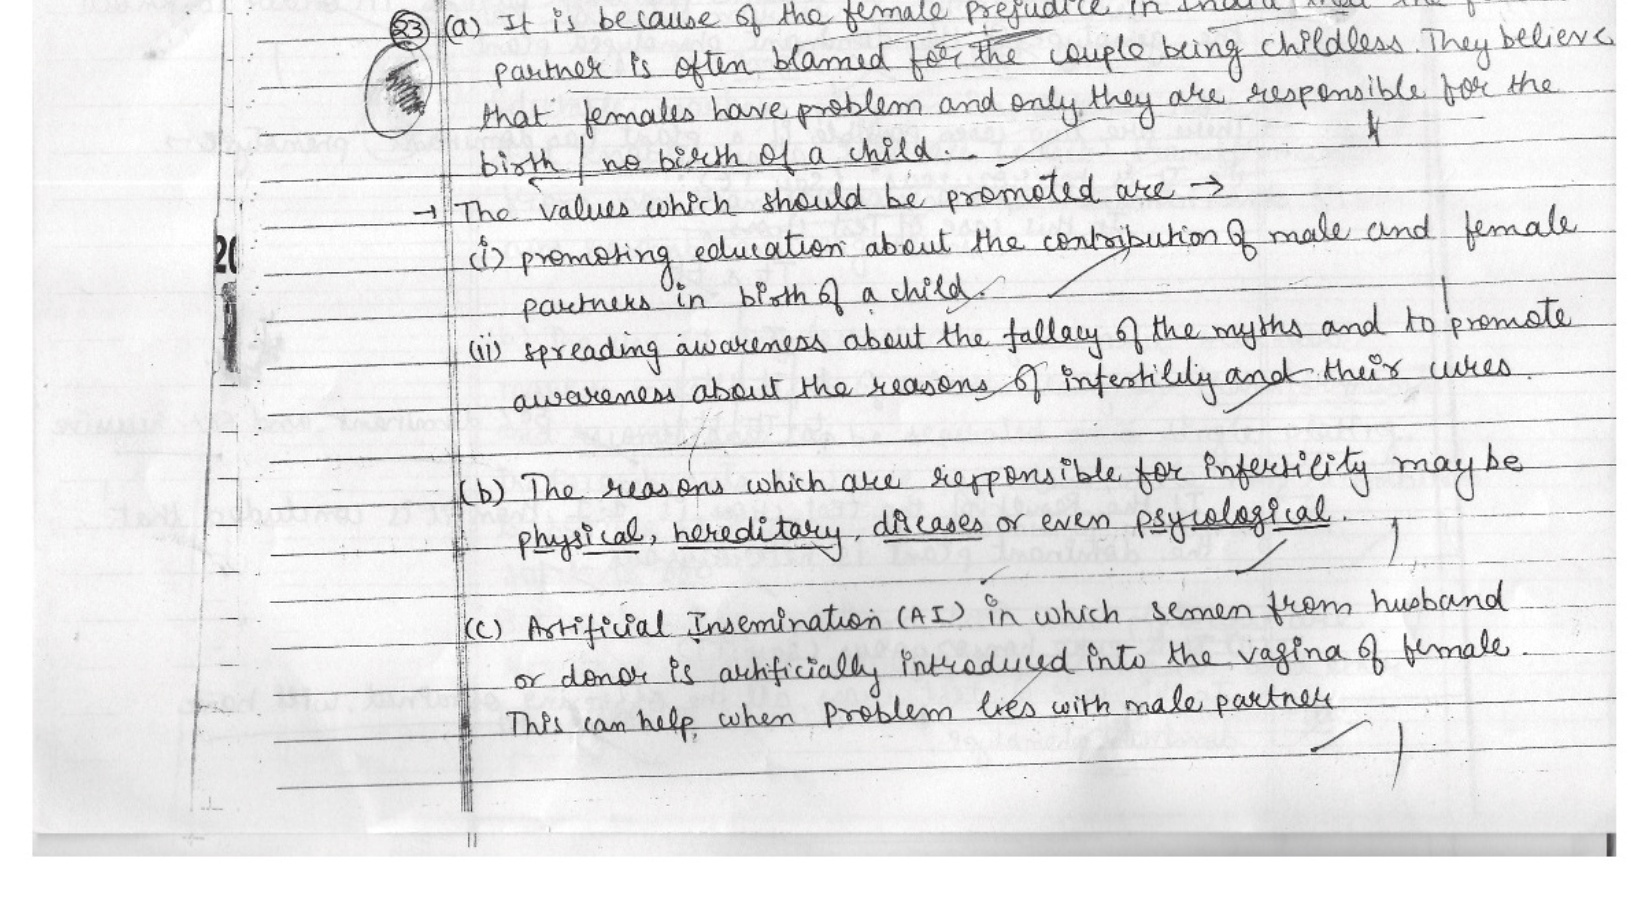 23 (a) It is because of the female prejudice in India that the
partner is often blamed for the couple being childless. They believe
that females have problem and only they are responsible for the
birth / no birth of a child.
→ The values which should be promoted are →
(i) promoting education about the contribution of male and female
partners in birth of a child.
(ii) spreading awareness about the fallacy of the myths and to promote
awareness about the reasons of infertility and their cures.
(b) The reasons which are responsible for infertility may be
physical, hereditary, diseases or even psycological.
(c) Artificial Insemination (AI) in which semen from husband
or donor is artificially introduced into the vagina of female.
This can help, when problem lies with male partner